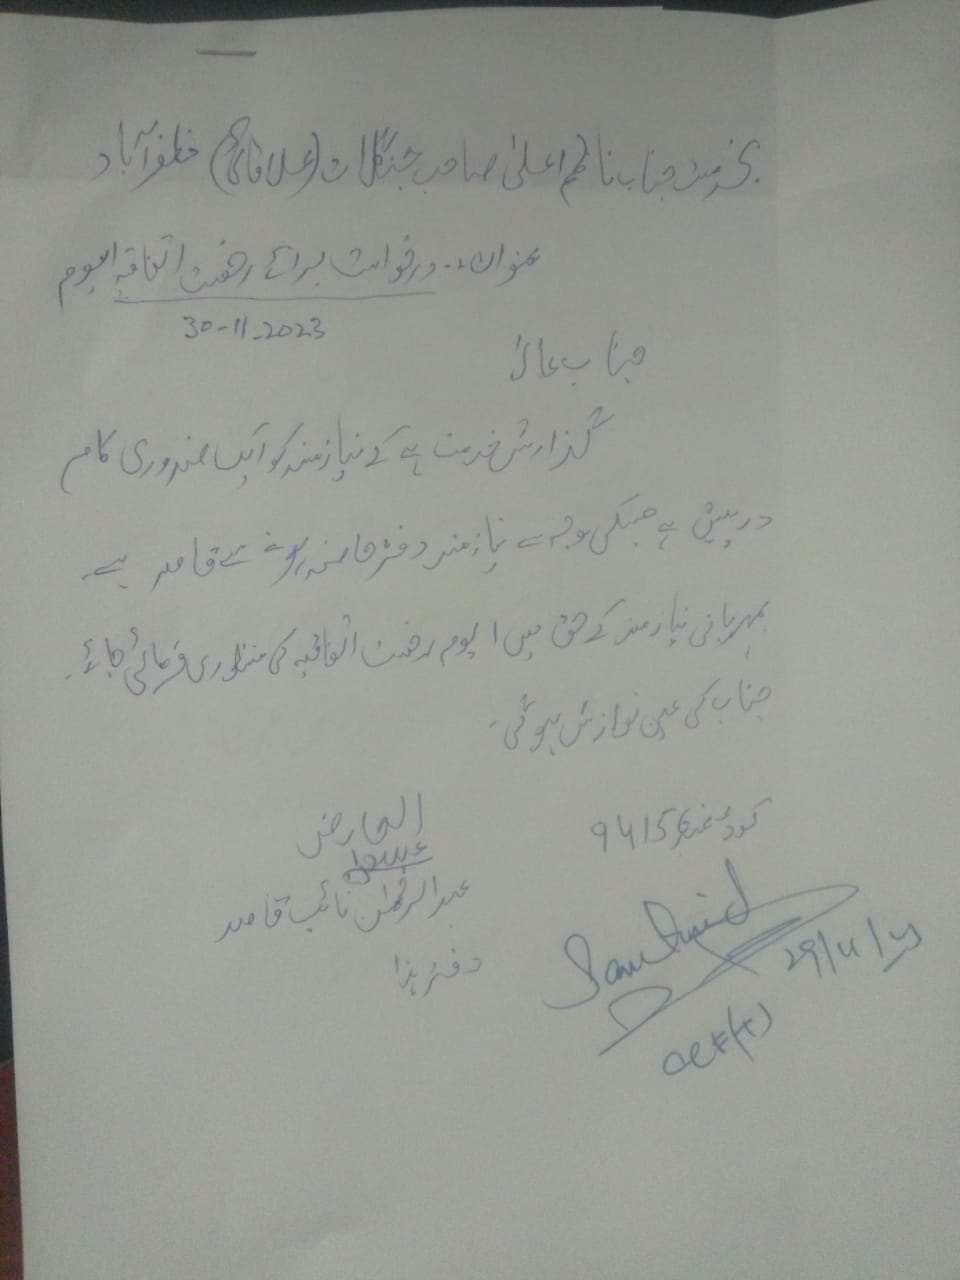 بخدمت جناب ناظم اعلیٰ صاحب جنگلات (علاقائی) مظفرآباد
عنوان:- درخواست برائے رخصت اتفاقیہ ایوم
30-11-2023
جناب عالیٰ
گذارش خدمت ہے کے نیازمند کو ایک ضروری کام
درپیش ہے جسکی وجہ سے نیازمند دفتر حاضر ہونے سے قاصر ہے۔
بمہربانی نیازمند کے حق میں 1 یوم رخصت اتفاقیہ کی منظوری فرمائی جائے۔
جناب کی عین نوازش ہوگی۔
العارض
کوڈ نمبر 9415
عبدالرحمٰن نائب قاصد
دفتر ہذا
29/11/23